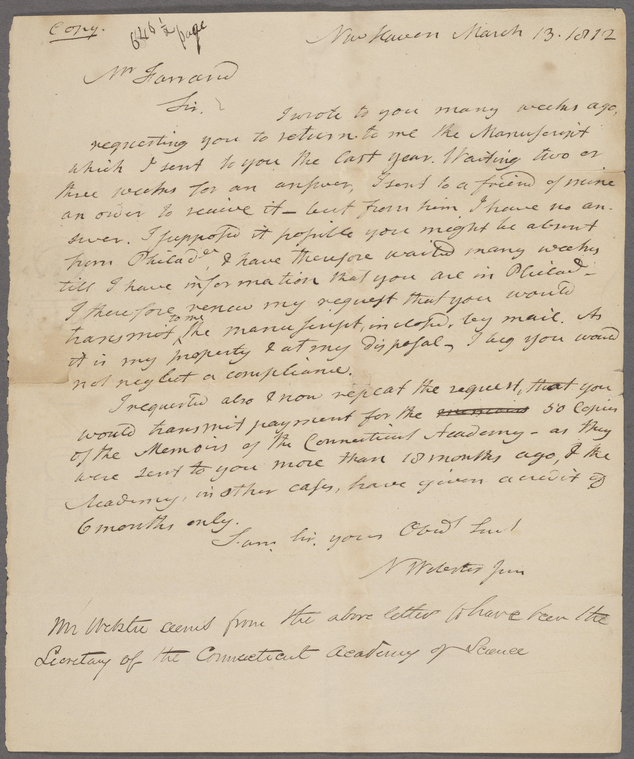 Copy.
646 1/2 page
New Haven March 13. 1812
Mr Farrand
Sir. I wrote to you many weeks ago,
requesting you to return to me the Manuscript
which I sent to you the last year. Waiting two or
three weeks for an answer, I sent to a friend of mine
an order to receive it — but from him I have no an-
swer. I supposed it possible you might be absent
from Philada. & have therefore waited many weeks
till I have information that you are in Philad—
I therefore renew my request that you would
transmit to me the manuscript, inclosed, by mail. As
it is my property & at my disposal — I beg you would
not neglect a compliance.
I requested also & now repeat the request, that you
would transmit payment for the 50 Copies
of the Memoirs of the Connecticut Academy — as they
were sent to you more than 18 months ago, & the
Academy, in other cases, have given a credit of
6 months only.
I am, Sir, yours Obedt Servt
N Webster Jun
Mr Webster seems from the above letter to have been the
Secretary of the Connecticut Academy of Science